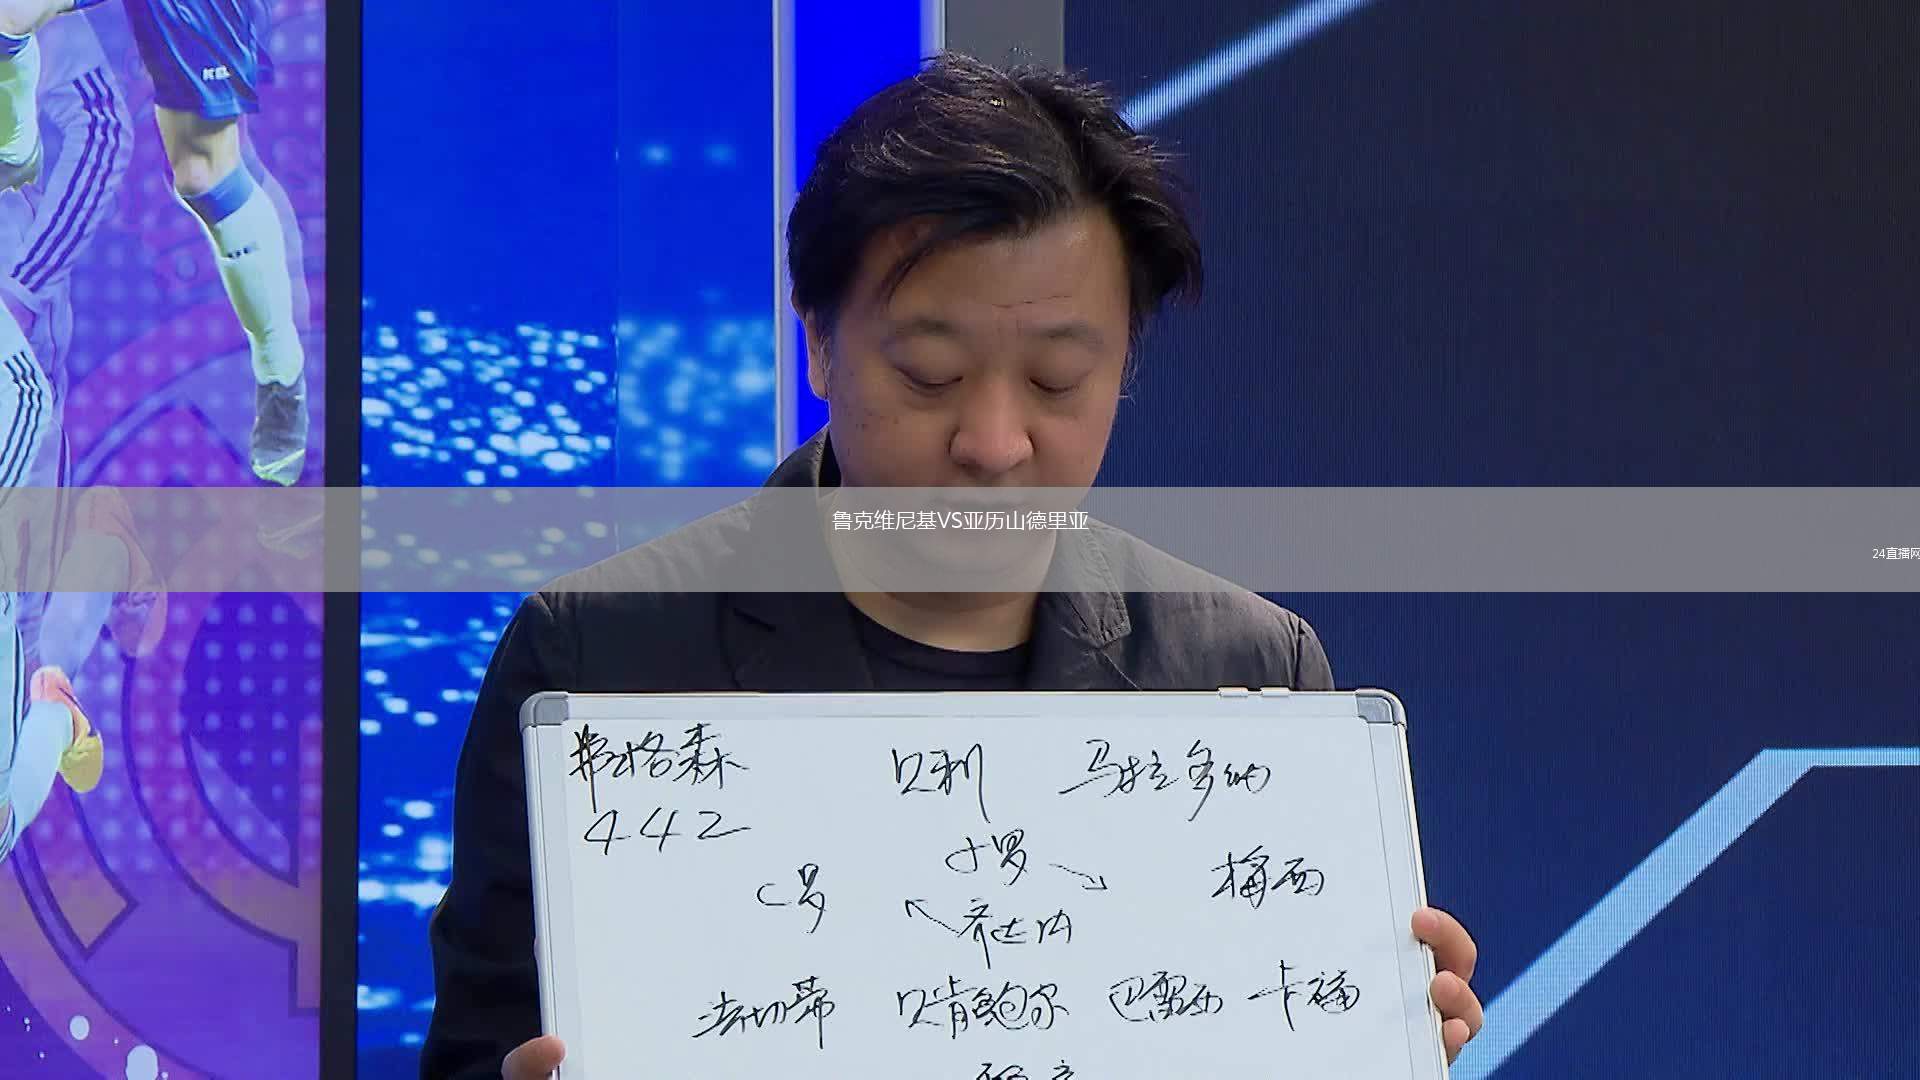 鲁克维尼基VS亚历山德里亚
24直播网
弗格森 贝利 马拉多纳
442
小罗
C罗 梅西
齐达内
法切蒂 贝肯鲍尔 巴雷西 卡福